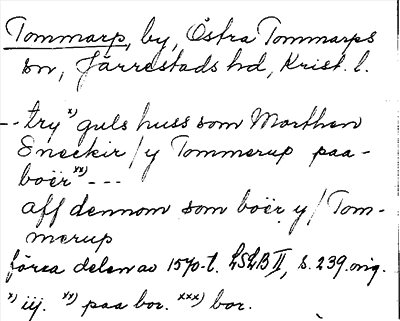 Tommarp, by, Östra Tommarps
sn, Järrestads hd, Krist. l.
-- try x) guls huss som Marthen
Sneckir / y Tommerup paa-
boër xx) ---
aff dennom som boër y / Tom-
merup
förra delen av 1570-t. LSLB II, s. 239. orig.
x) iij. xx) paa bor. xxx) bor.